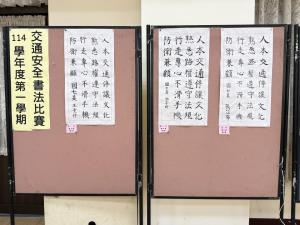 交通安全書法比賽
114
學年度第一學期
人本交通停讓文化
熟悉路權遵守法規
行走專心不滑手機
防衛兼顧
人本交通停讓文化
熟悉路權遵守法規
行走專心不滑手機
防衛兼顧
人本交通停讓文化
熟悉路權遵守法規
行走專心不滑手機
防衛兼顧